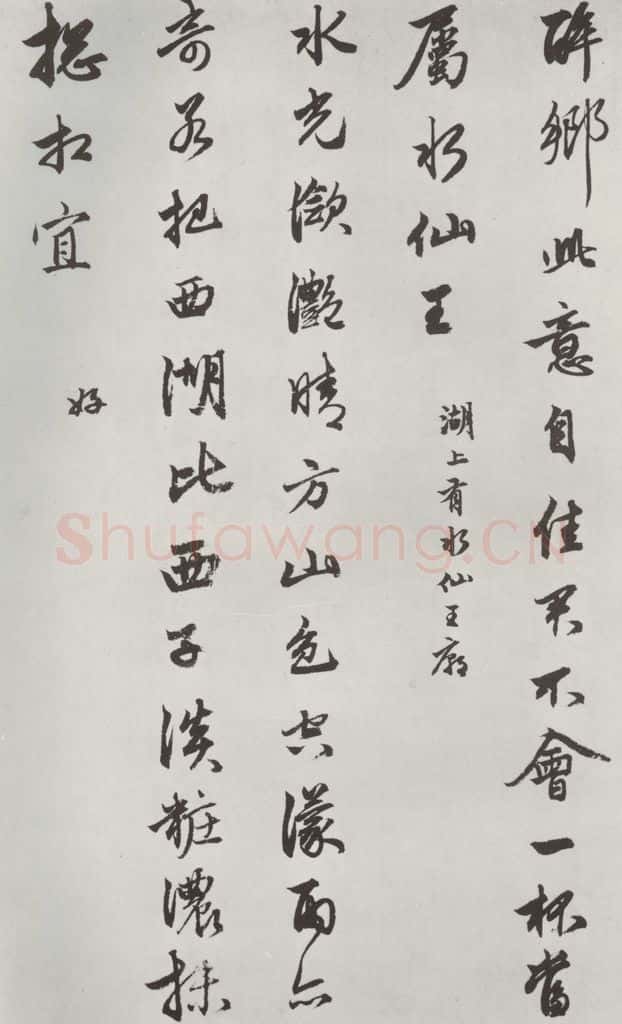 醉鄉此意自佳君不會一杯當
屬水仙王
湖上有水仙王廟
水光瀲灩晴方山色空濛雨亦
奇若把西湖比西子淡粧濃抹
揔相宜
好
Shufawang.CN